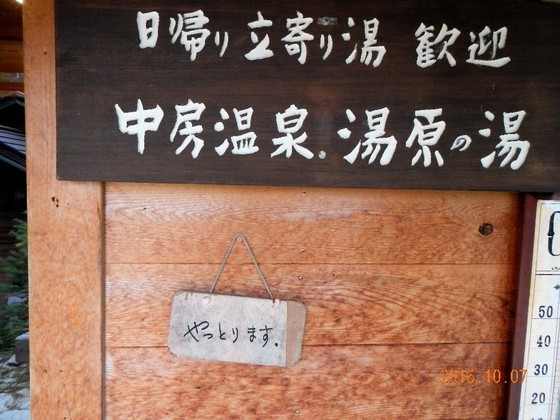 日帰り立寄り湯 歓迎
中房温泉。湯原の湯
やっとります。
50
40
30
20
10
2016.10.07